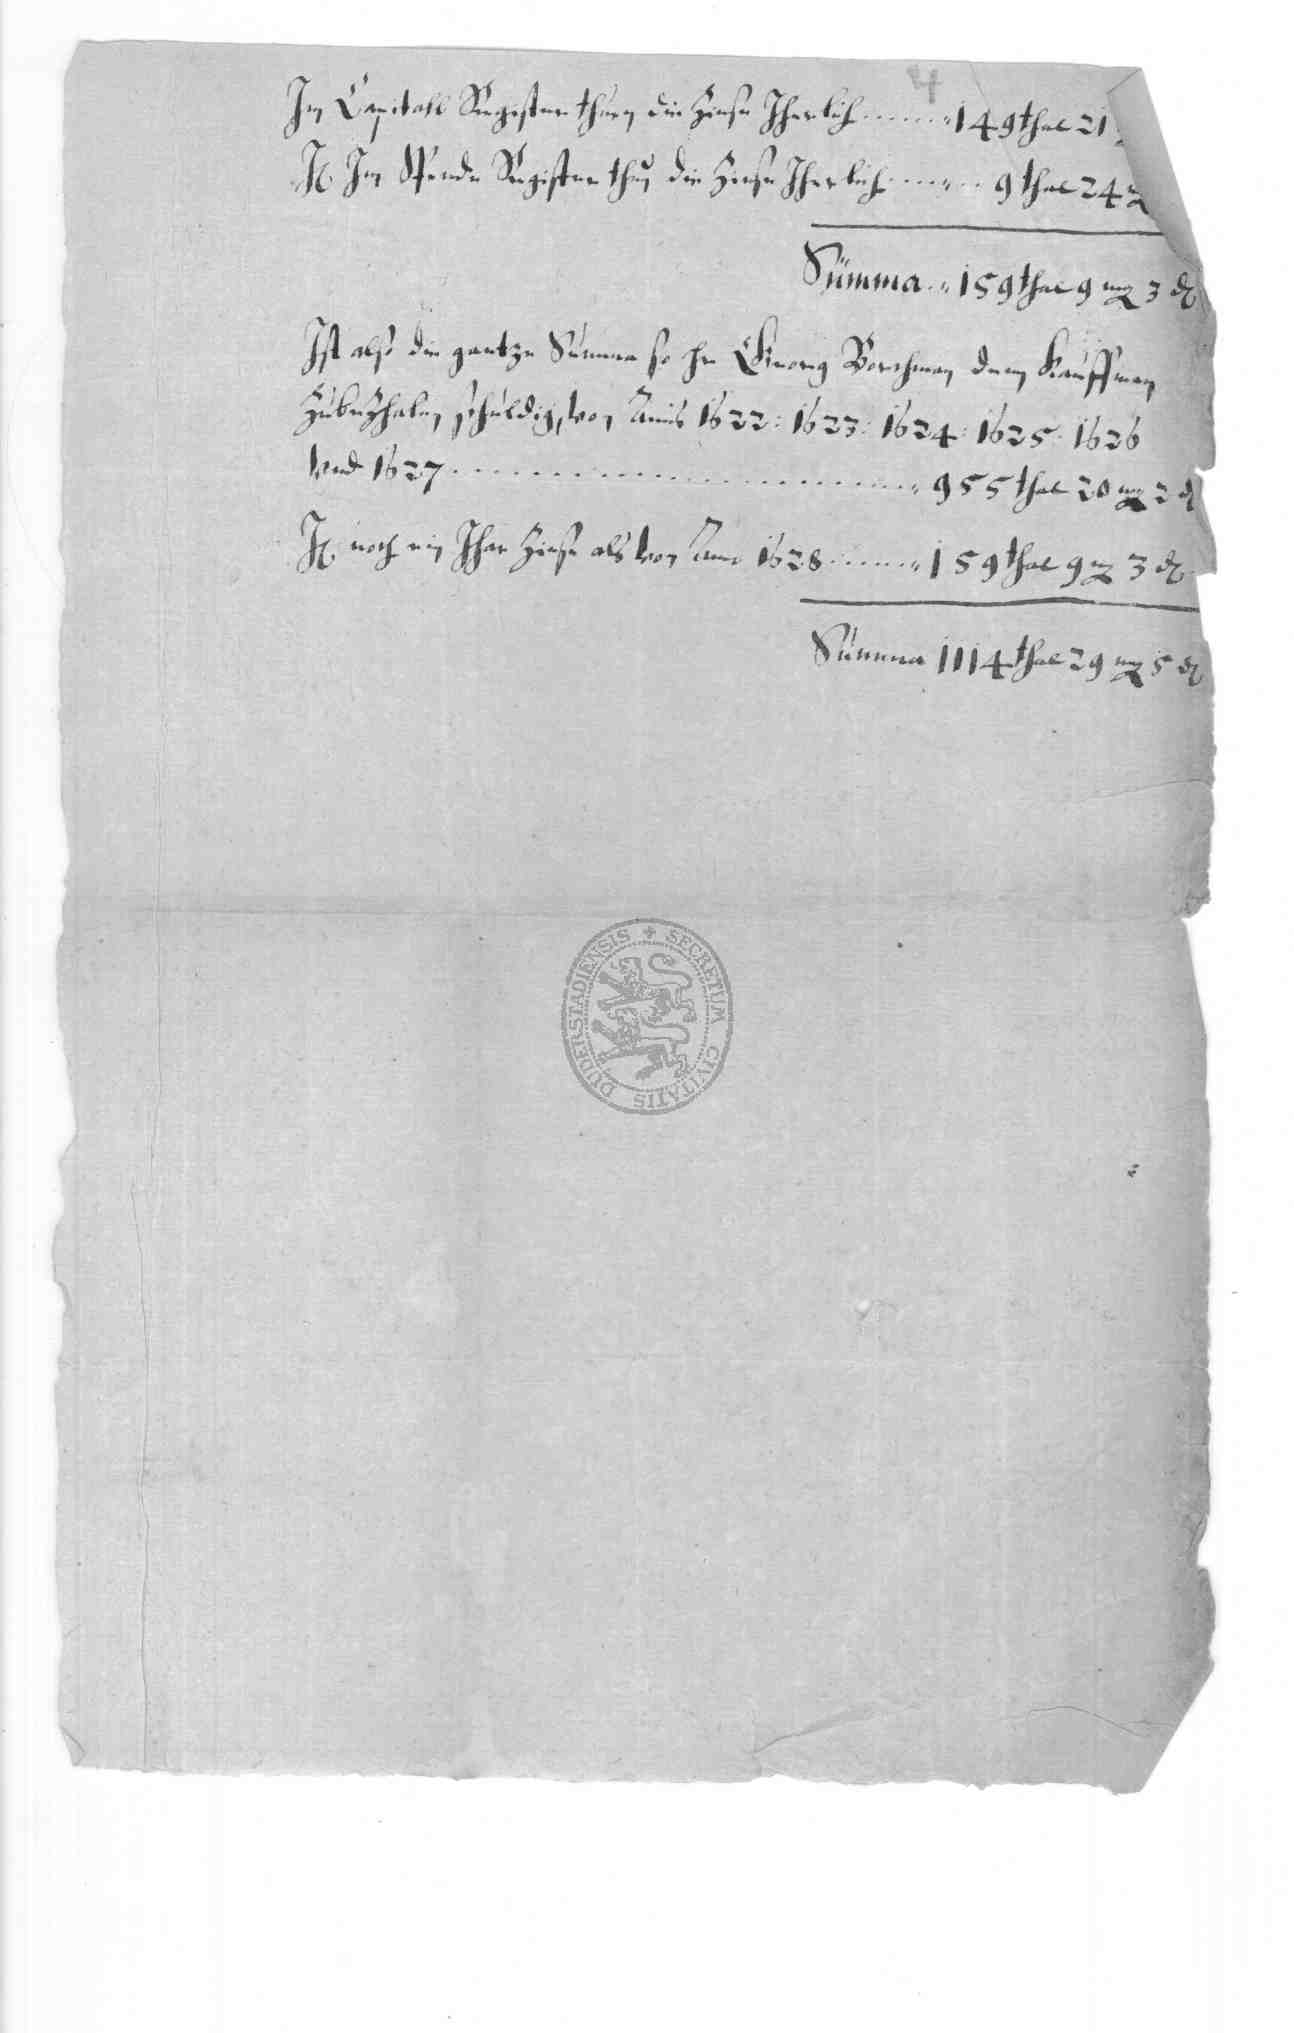 4
Im Capitall Register thuen die Zinse Jherlich ........ 149 thal 21
It Im Spende Register thun die Zinse Jherlich ....... 9 thal 24 mg
Summa .. 159 thal 9 mg 3 d
Ist also die gantze Summa so hr Georg Borchman dem Kauffman
Zubezhalen schuldig, von Annis 1622 : 1623 : 1624 : 1625 : 1626
vnd 1627 .......................... 955 thal 20 mg 2 d
It noch ein Jhar Zinse als von Anno 1628 ....... 159 thal 9 mg 3 d
Summa 1114 thal 29 mg 5 d
SECRETUM CIVITATIS DUDERSTADIENSIS